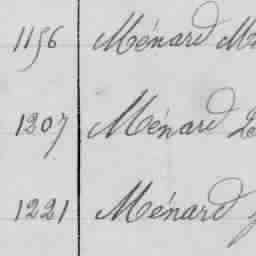 1156 Ménard M
1207 Ménard
1221 Ménard